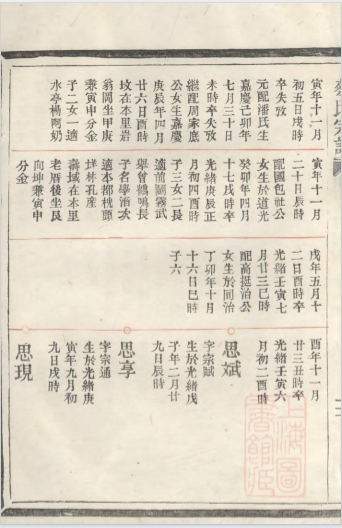 寅年十一月
初五日戌時
卒失攷
元配潘氏生
嘉慶己卯年
七月三十日
未時卒失攷
繼配周家底
公女生嘉慶
庚辰年四月
廿六日酉時
坟在本里岩
翁岡坐甲庚
兼寅申分金
子二女一適
水亭楊阿奶
寅年十一月
二十日辰時
配國包社公
女生於道光
癸卯年四月
十七戌時卒
光緒庚辰正
月初四酉時
子三女二長
適前關霧武
舉曾鶴鳴長
子名學滔次
適本都枕頭
垟林孔產
壽域在本里
老厝後坐艮
向坤兼寅申
分金
戌年五月十
二日酉時卒
光緒壬寅七
月廿三巳時
配高挺治公
女生於同治
丁卯年十月
十六日巳時
子六
酉年十一月
廿三丑時卒
光緒壬寅六
月初二酉時
思斌
字宗賦
生於光緒戊
子年二月廿
九日辰時
思享
字宗通
生於光緒庚
寅年九月初
九日戌時
思現
氏宗譜
上海圖書館藏